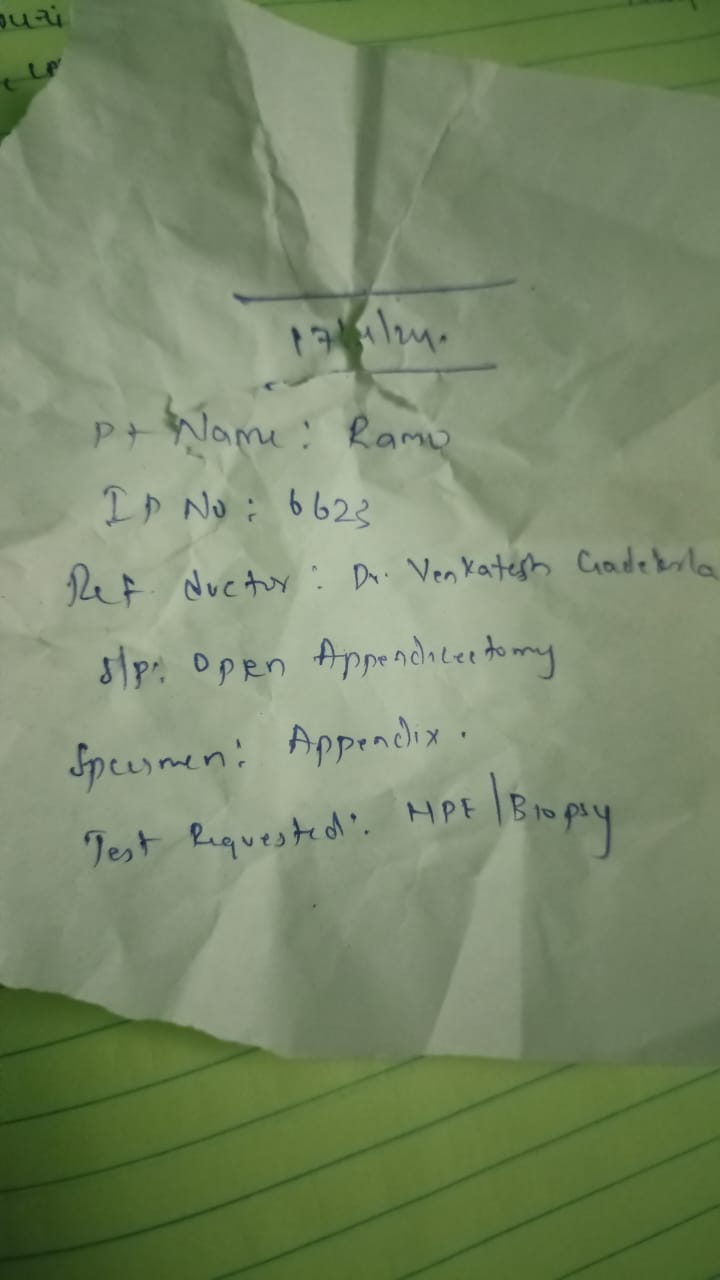 Pt Name: Ramu
IP No: 6623
Ref ductor: Dr. Venkatesh
S/p: Open Appendicectomy
Specimen: Appendix.
Test Requested: HPE/Biopsy